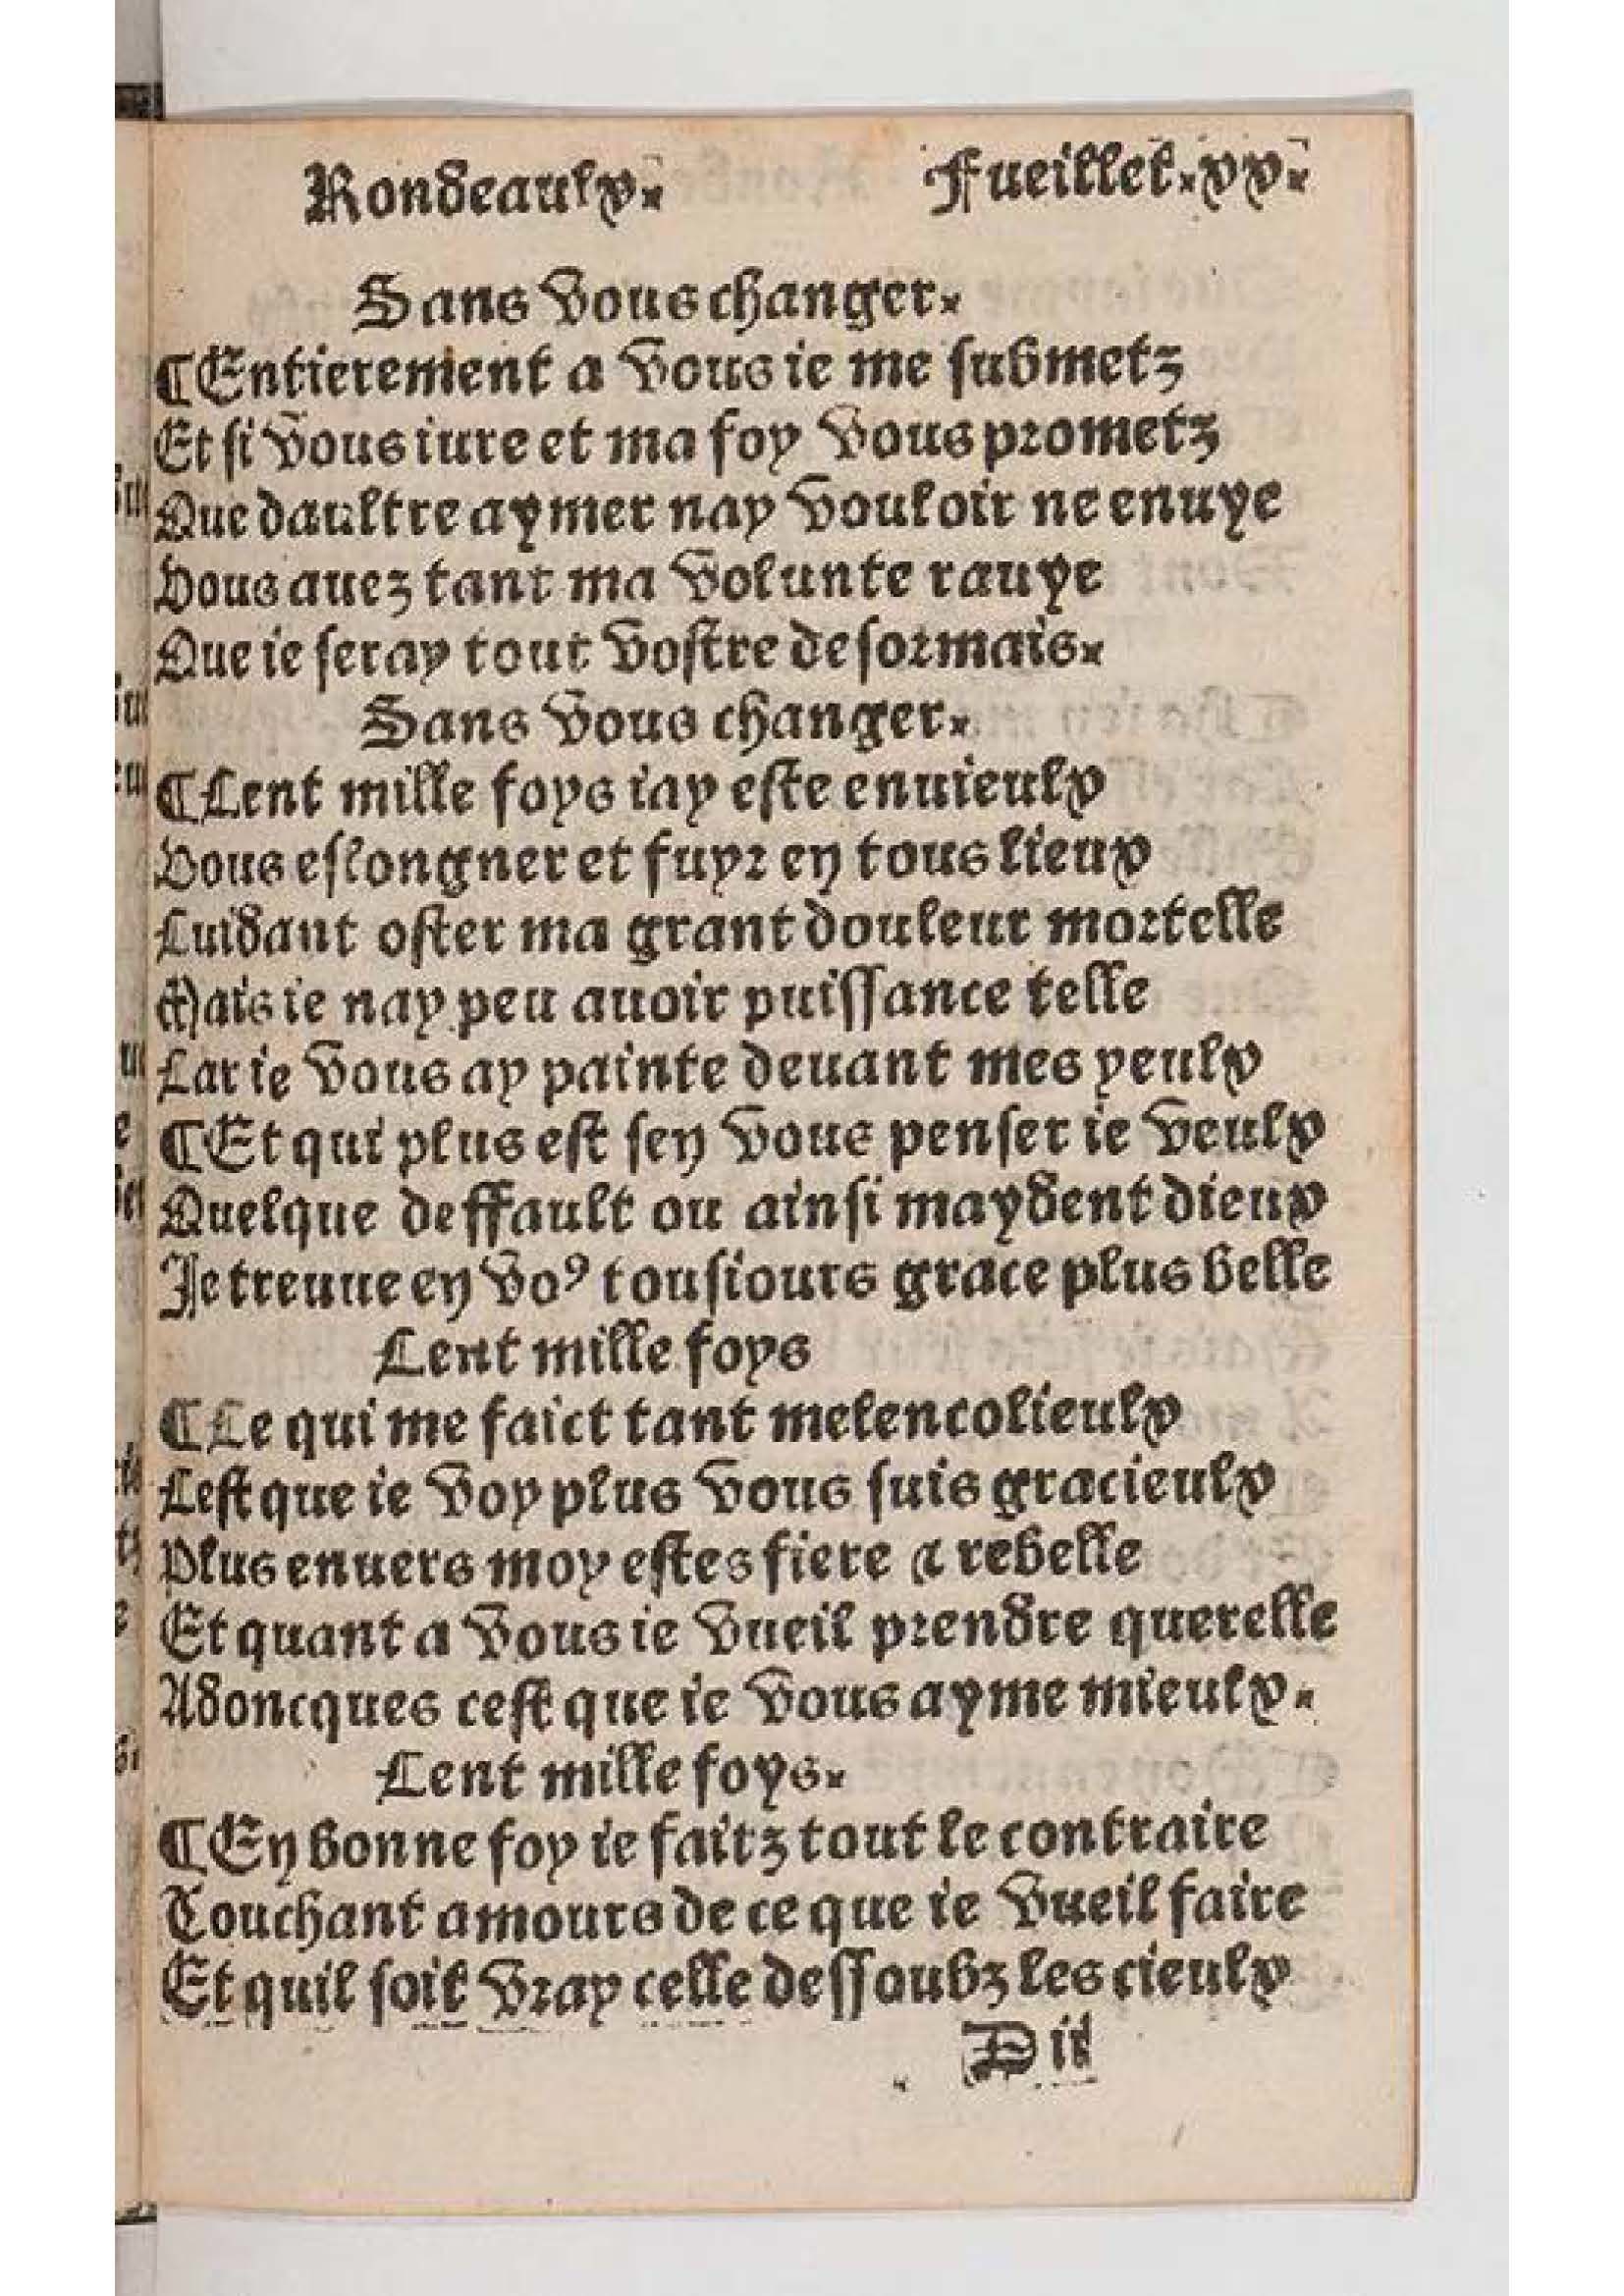 Rondeaulx. Fueillet.xx.
Sans vous changer.
¶Entierement a vous ie me submetz
Et si vous iure et ma foy vous prometz
Que daultre aymer nay vouloir ne enuye
Vous auez tant ma volunte rauye
Que ie seray tout vostre desormais.
Sans vous changer.
¶Cent mille foys iay este enuieulx
Vous eslongner et fuyr en tous lieux
Cuidant oster ma grant douleur mortelle
Mais ie nay peu auoir puissance telle
Car ie vous ay painte deuant mes yeulx
¶Et qui plus est sen vous penser ie veulx
Quelque deffault ou ainsi maydent dieux
Je treuue en voꝰ tousiours grace plus belle
Cent mille foys
¶Ce qui me faict tant melencolieulx
Cest que ie voy plus vous suis gracieulx
Plus enuers moy estes fiere ⁊ rebelle
Et quant a vous ie vueil prendre querelle
Adoncques cest que ie vous ayme mieulx.
Cent mille foys.
¶En bonne foy ie faitz tout le contraire
Touchant amours de ce que ie vueil faire
Et quil soit vray celle dessoubz les cieulx
D ii